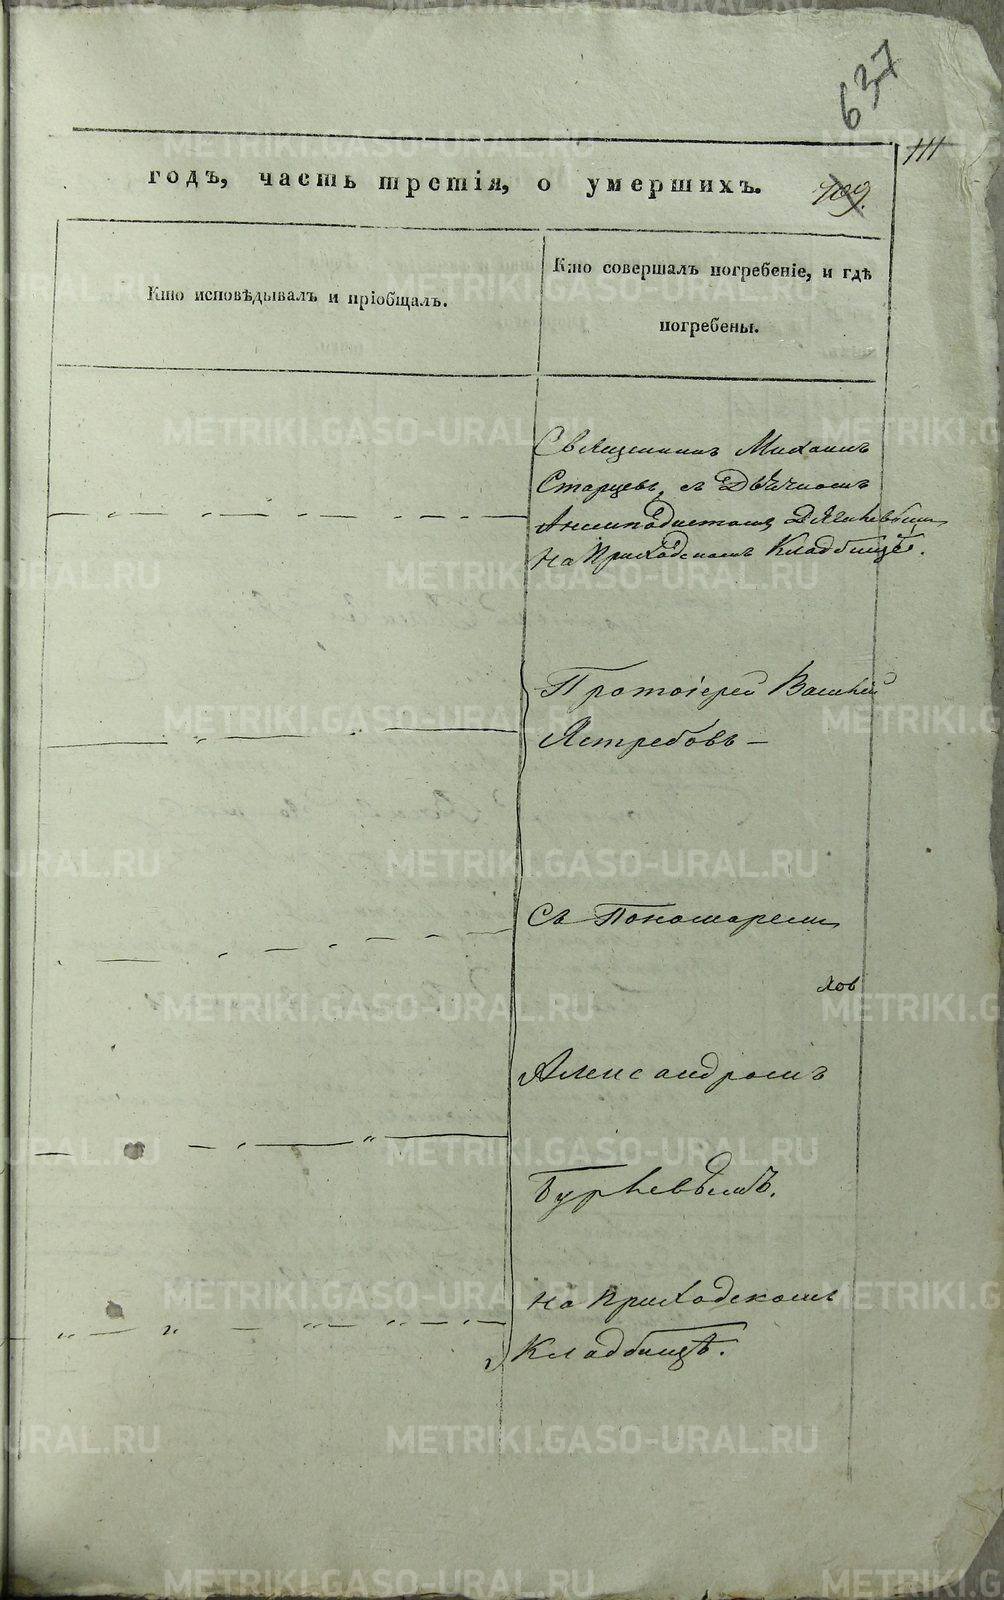 637
111
годъ, часть третія, о умершихъ.
109.
Кто исповѣдывалъ и пріобщалъ.
Кто совершалъ погребеніе, и гдѣ
погребены.
Священникъ Михаилъ
Старцевъ, съ Дьячкомъ
На Приходскомъ Кладбищѣ.
Протоіерей Василій
Ястребовъ —
Съ Пономаремъ
Александромъ
на Приходскомъ
Кладбищѣ.
METRIKI.GASO-URAL.RU